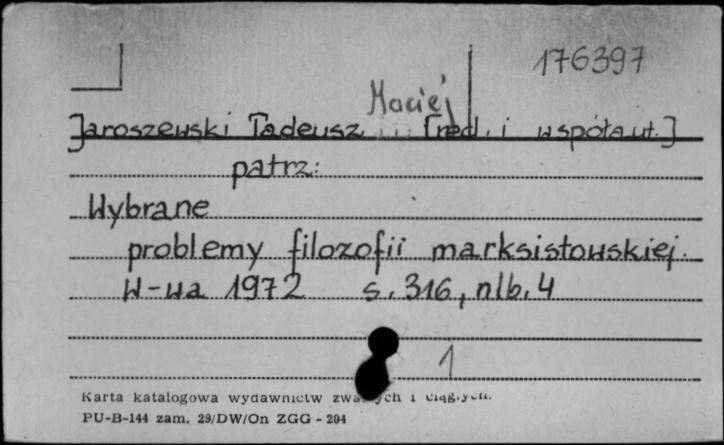 176397
Maciej
Jaroszewski Tadeusz ... [red. i współaut.]
patrz:
Wybrane
problemy filozofii marksistowskiej.
W-wa 1972 s. 316, nlb. 4
1
Karta katalogowa wydawnictw i
PU-B-144 zam. 29/DW/On ZGG - 204